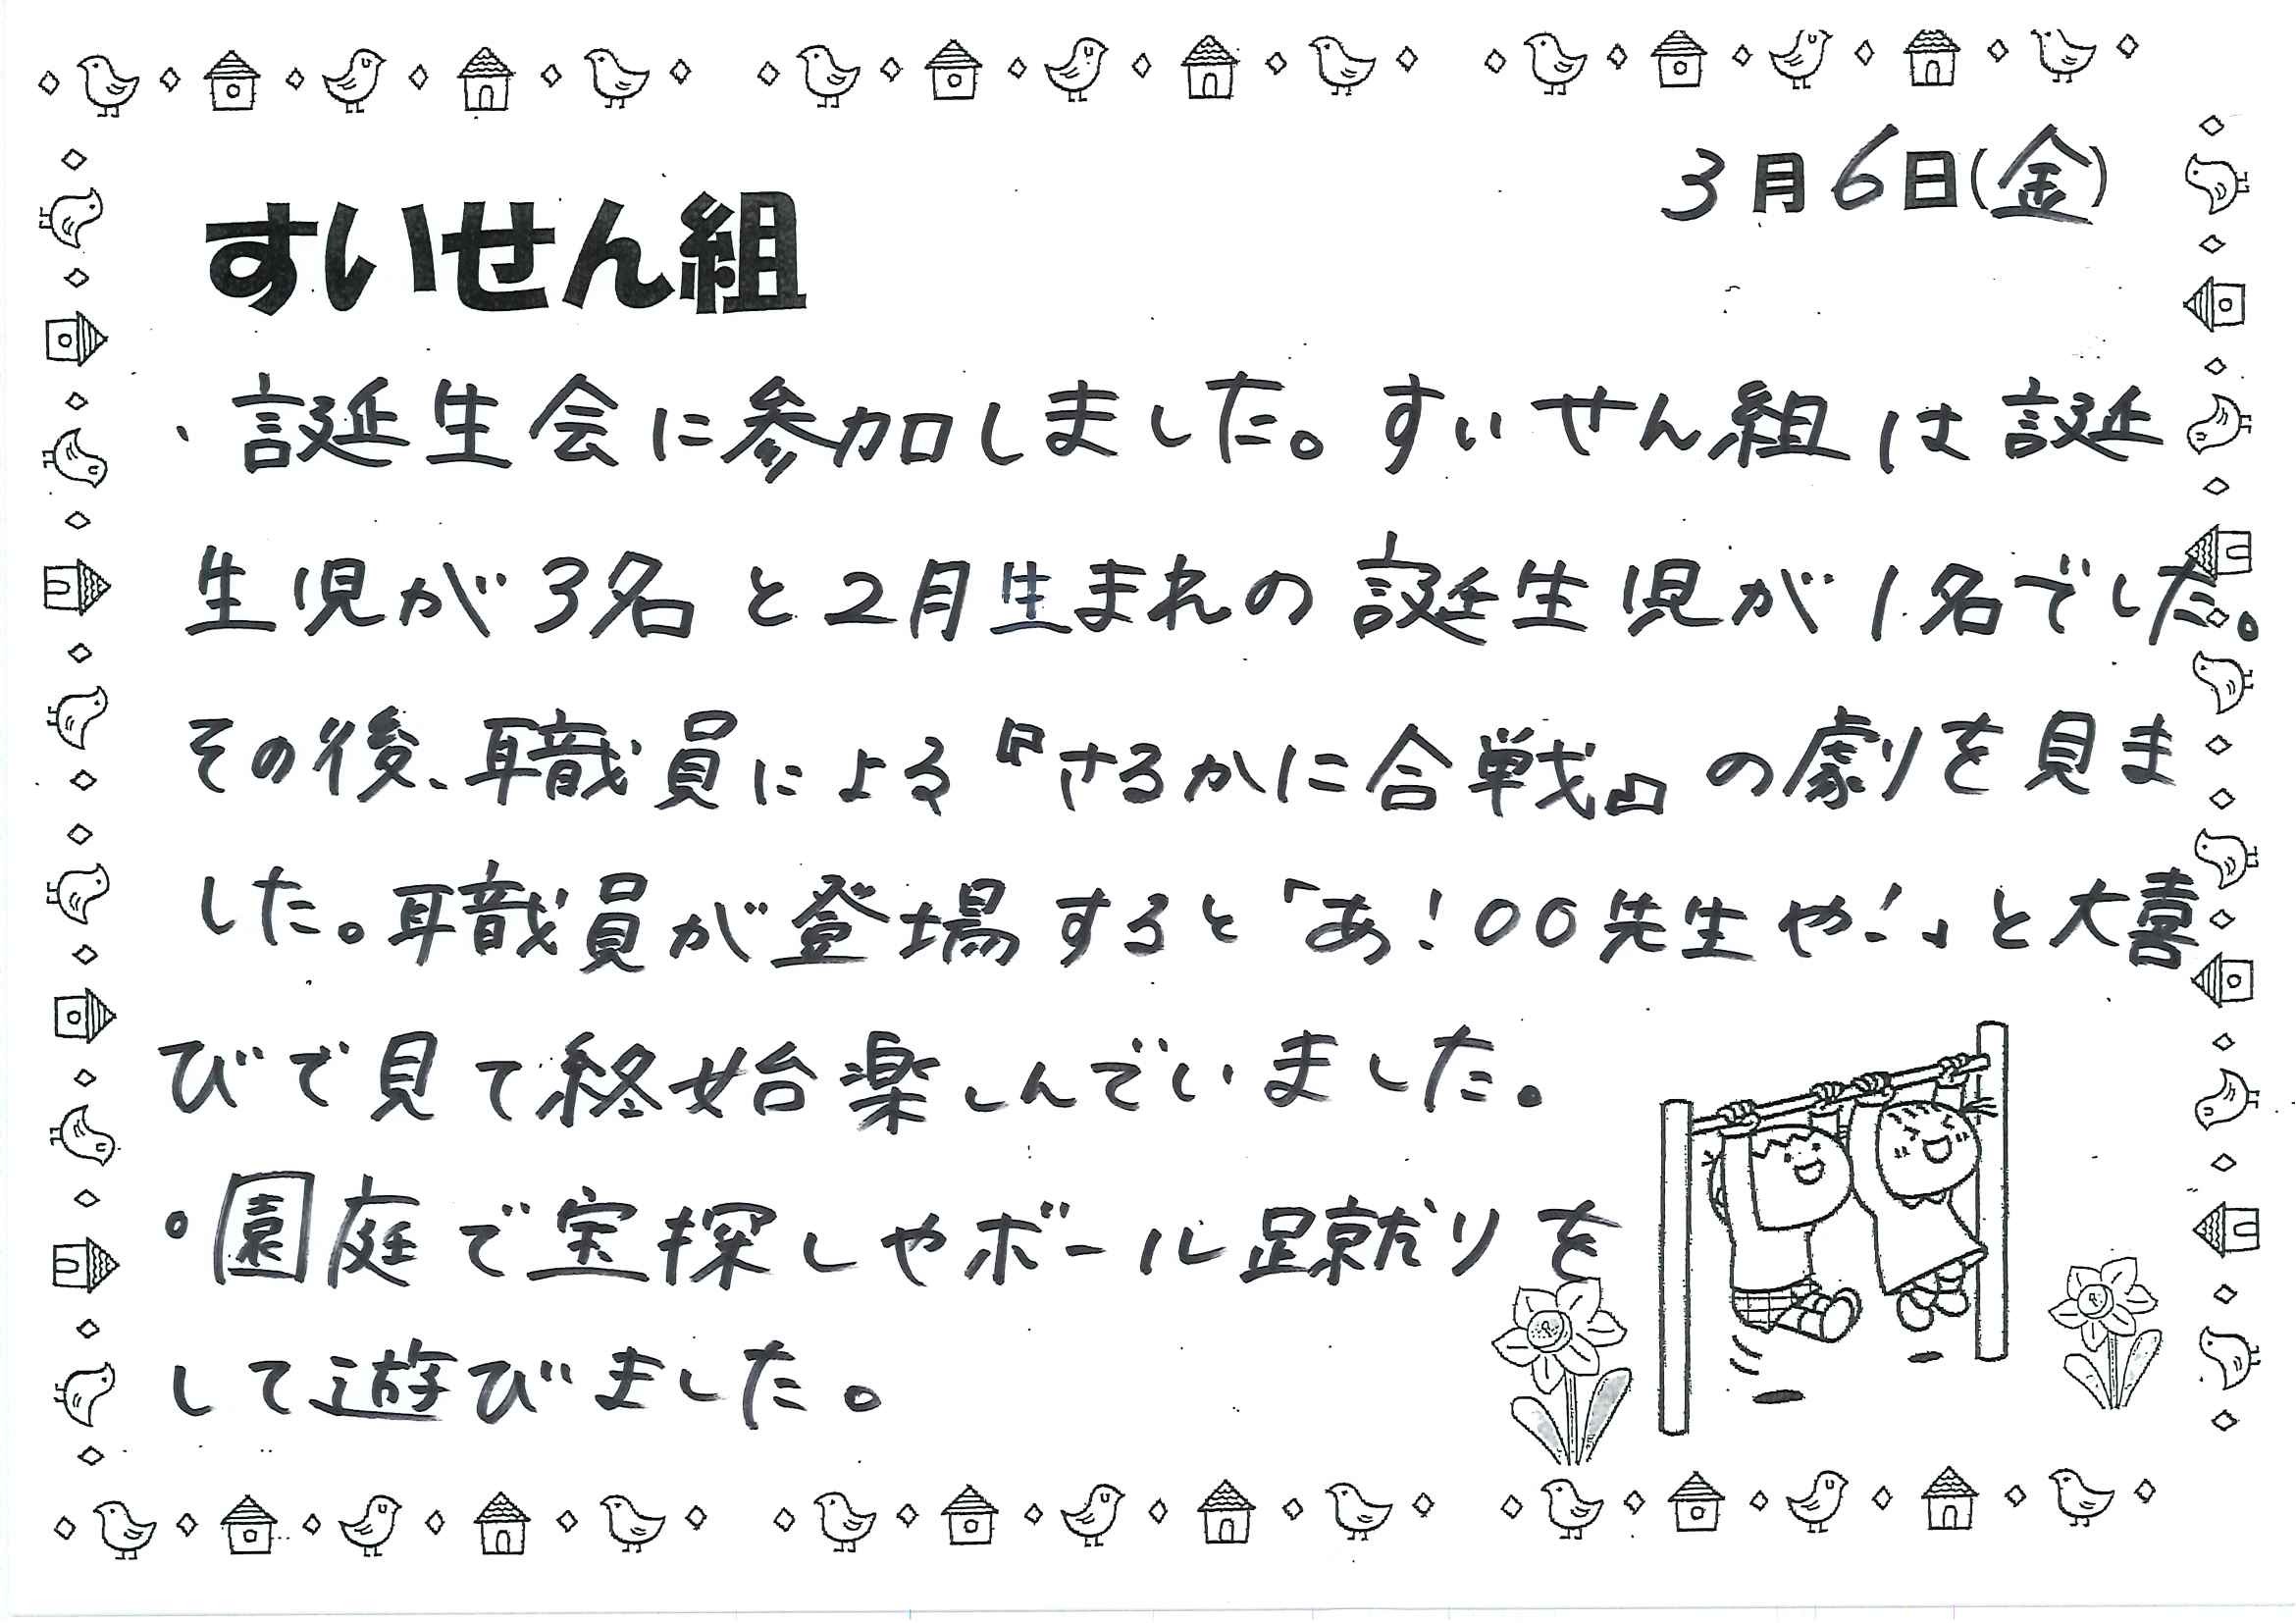 3月6日(金)
すいせん組
・誕生会に参加しました。すいせん組は誕
生児が3名と2月生まれの誕生児が1名でした。
その後、職員による『さるかに合戦』の劇を見ま
した。職員が登場すると「あ!〇〇先生や!」と大喜
びで見て終始楽しんでいました。
・園庭で宝探しやボール蹴りを
して遊びました。